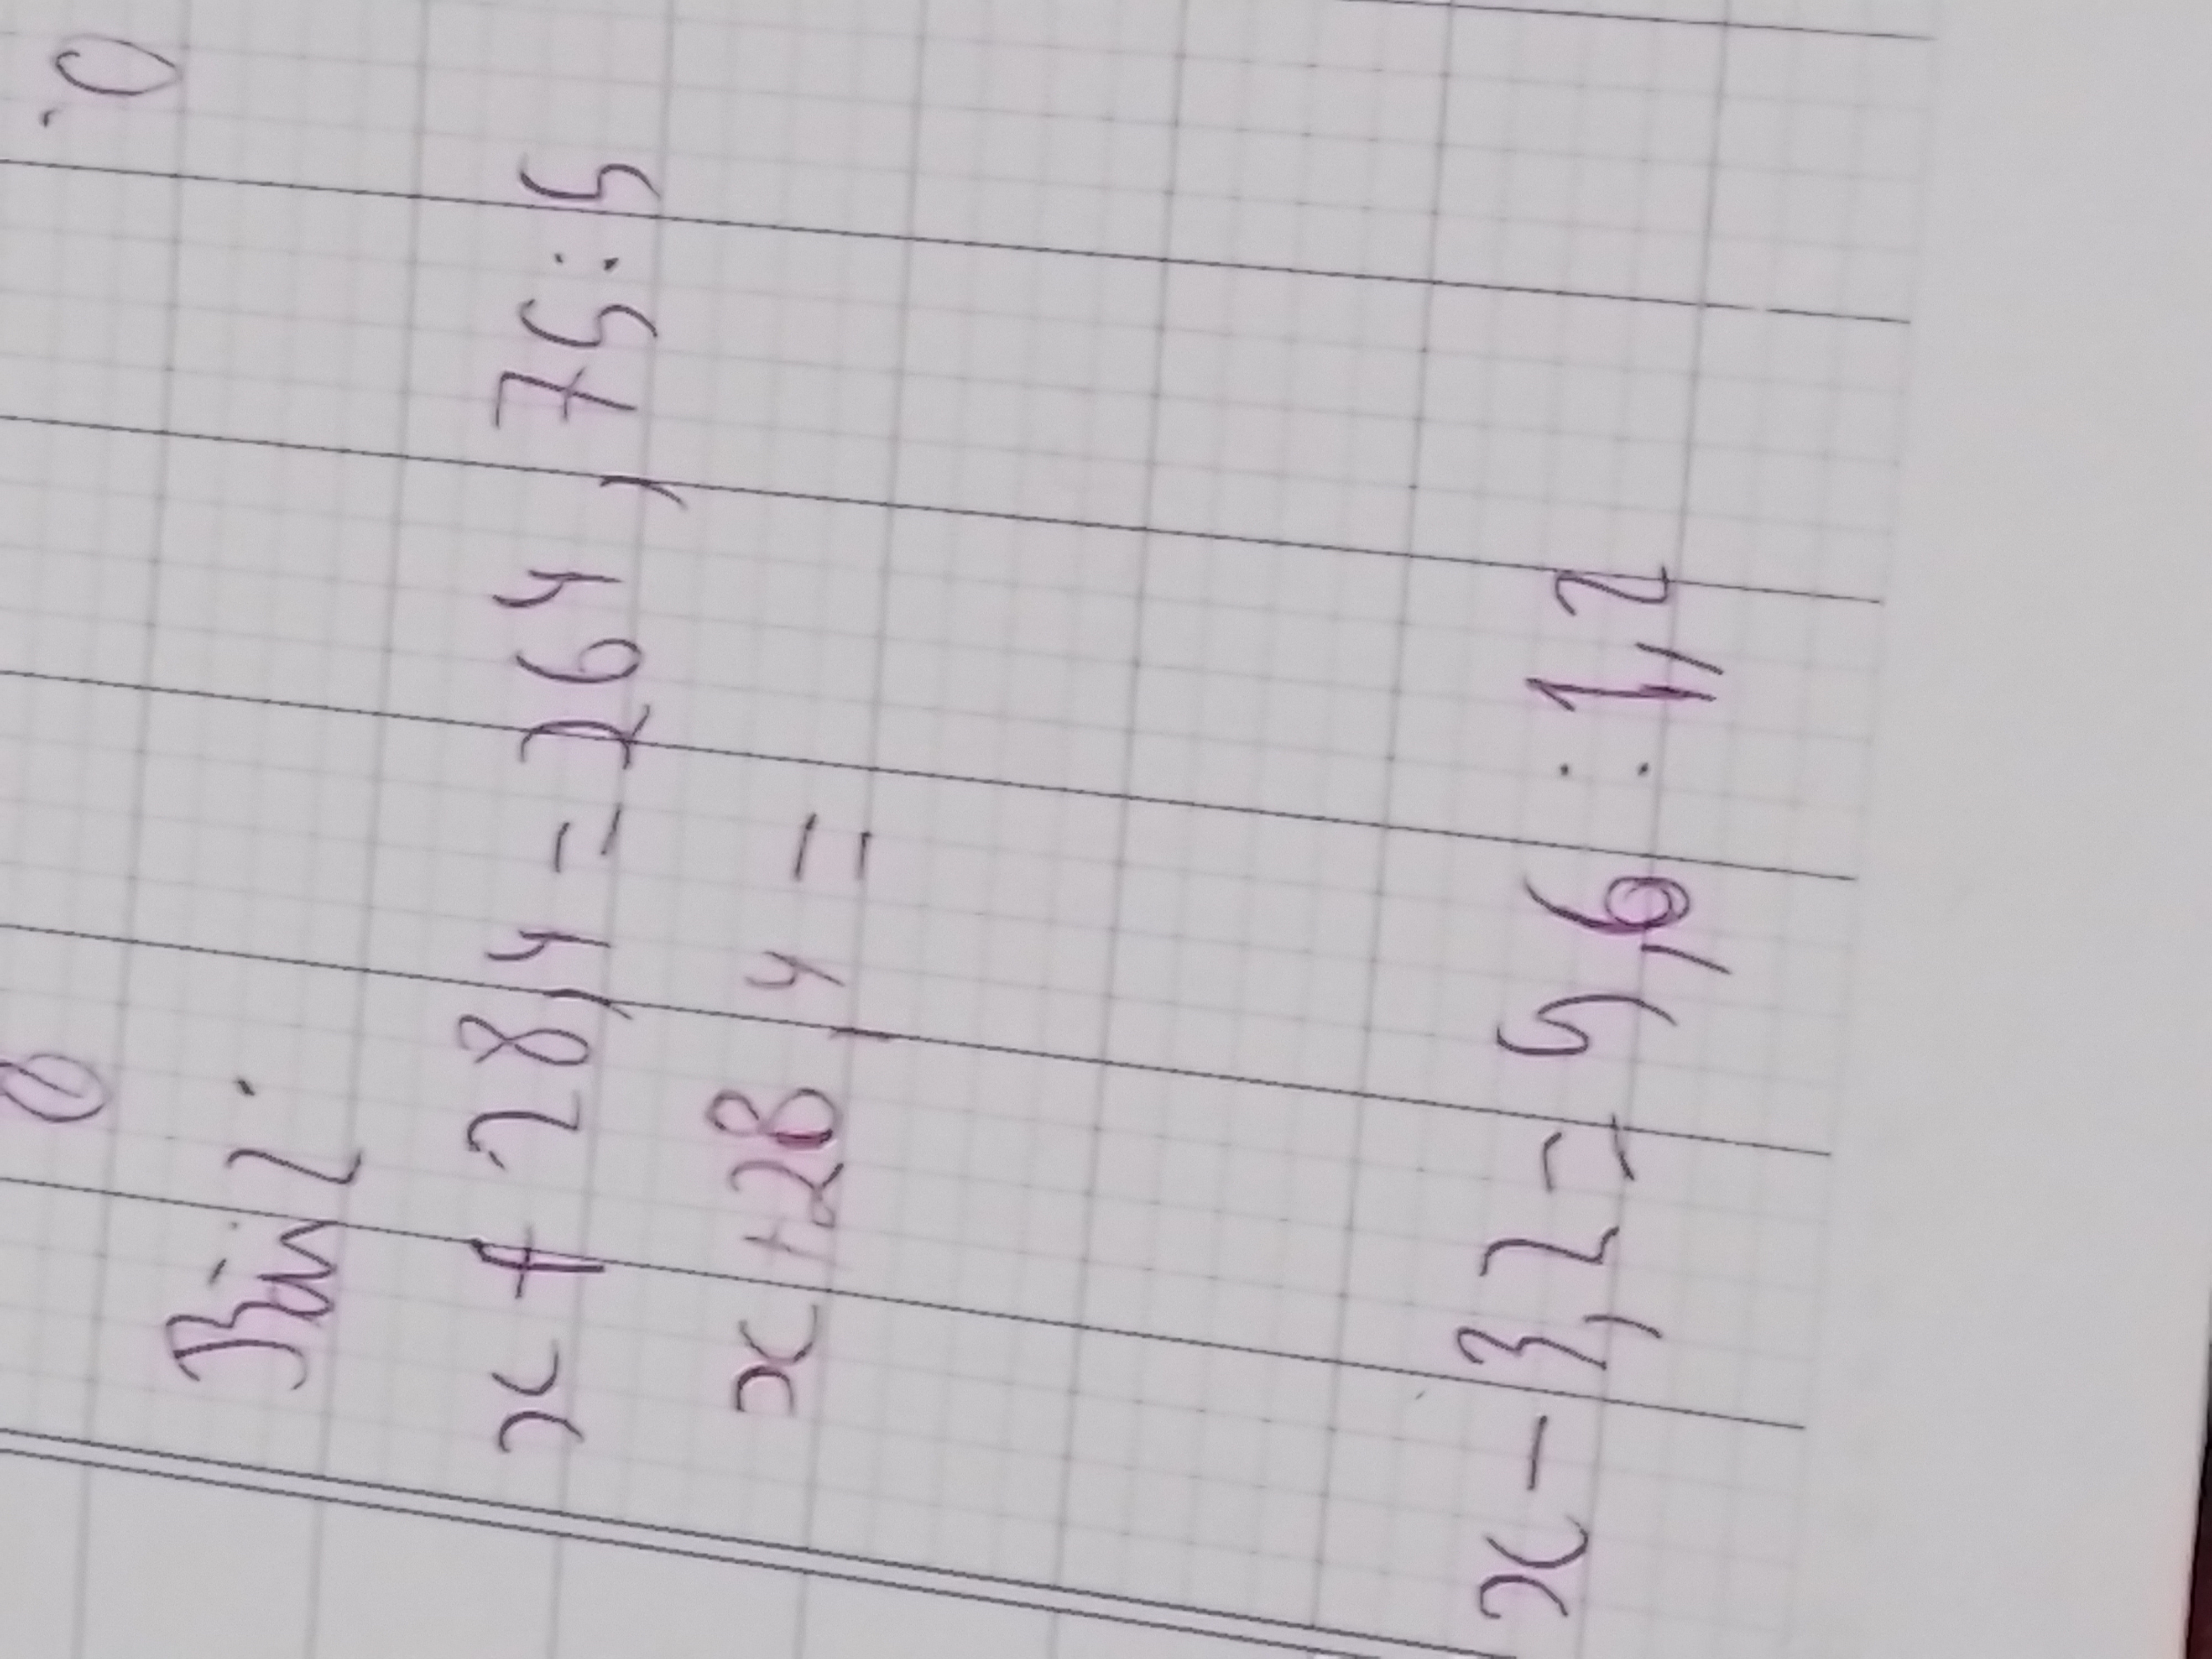 Bài 2.
x + 28,4 = 264,75:5
x + 28,4 =
x - 3,2 = 5,6 : 1,2